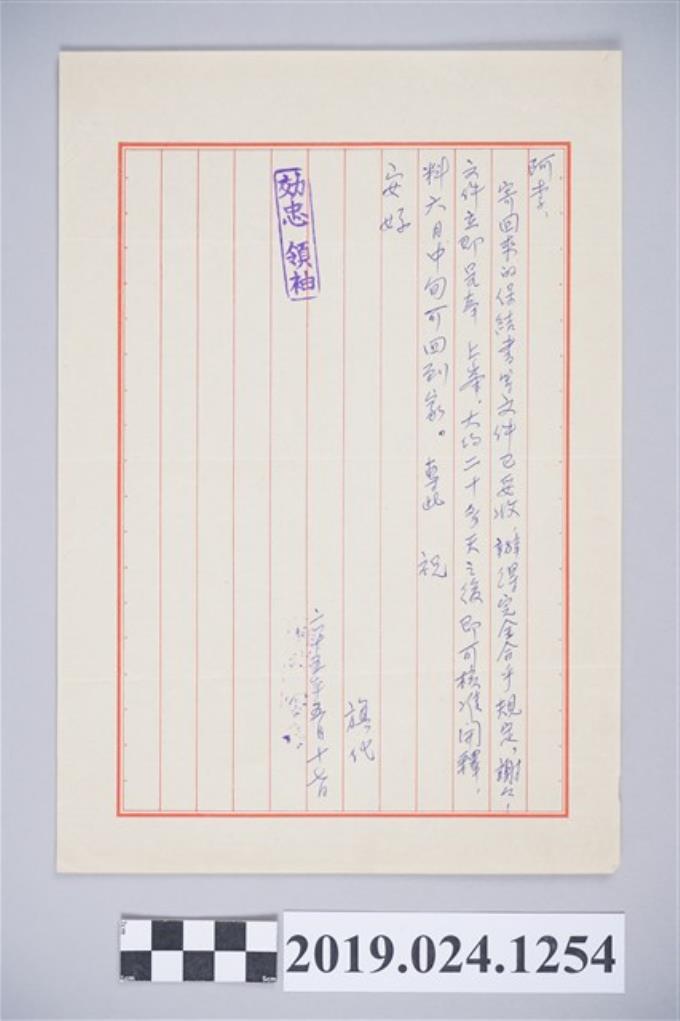 阿李、
寄回來的保結書等文件已妥收，辦得完全合乎規定，謝々！
文件立即呈奉 上峯，大約二十多天之後即可核准開釋，
料六月中旬可回到家。 專此 祝
安好
旗代
六十五年五月十七日
効忠 領袖
2019.024.1254